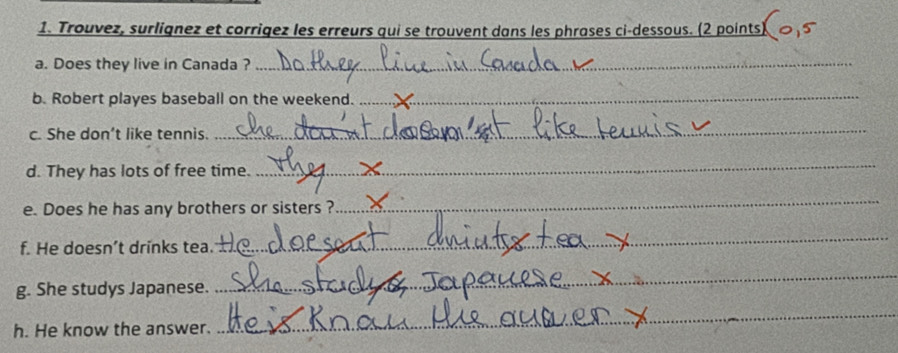 1. Trouvez, surlignez et corrigez les erreurs qui se trouvent dans les phrases ci-dessous. (2 points) 0,5
a. Does they live in Canada ? Do they live in Canada
b. Robert playes baseball on the weekend.
c. She don't like tennis. She like tennis
d. They has lots of free time. They
e. Does he has any brothers or sisters ?
f. He doesn't drinks tea. He doesent drinks tea
g. She studys Japanese. She Japanese
h. He know the answer. He is Know the